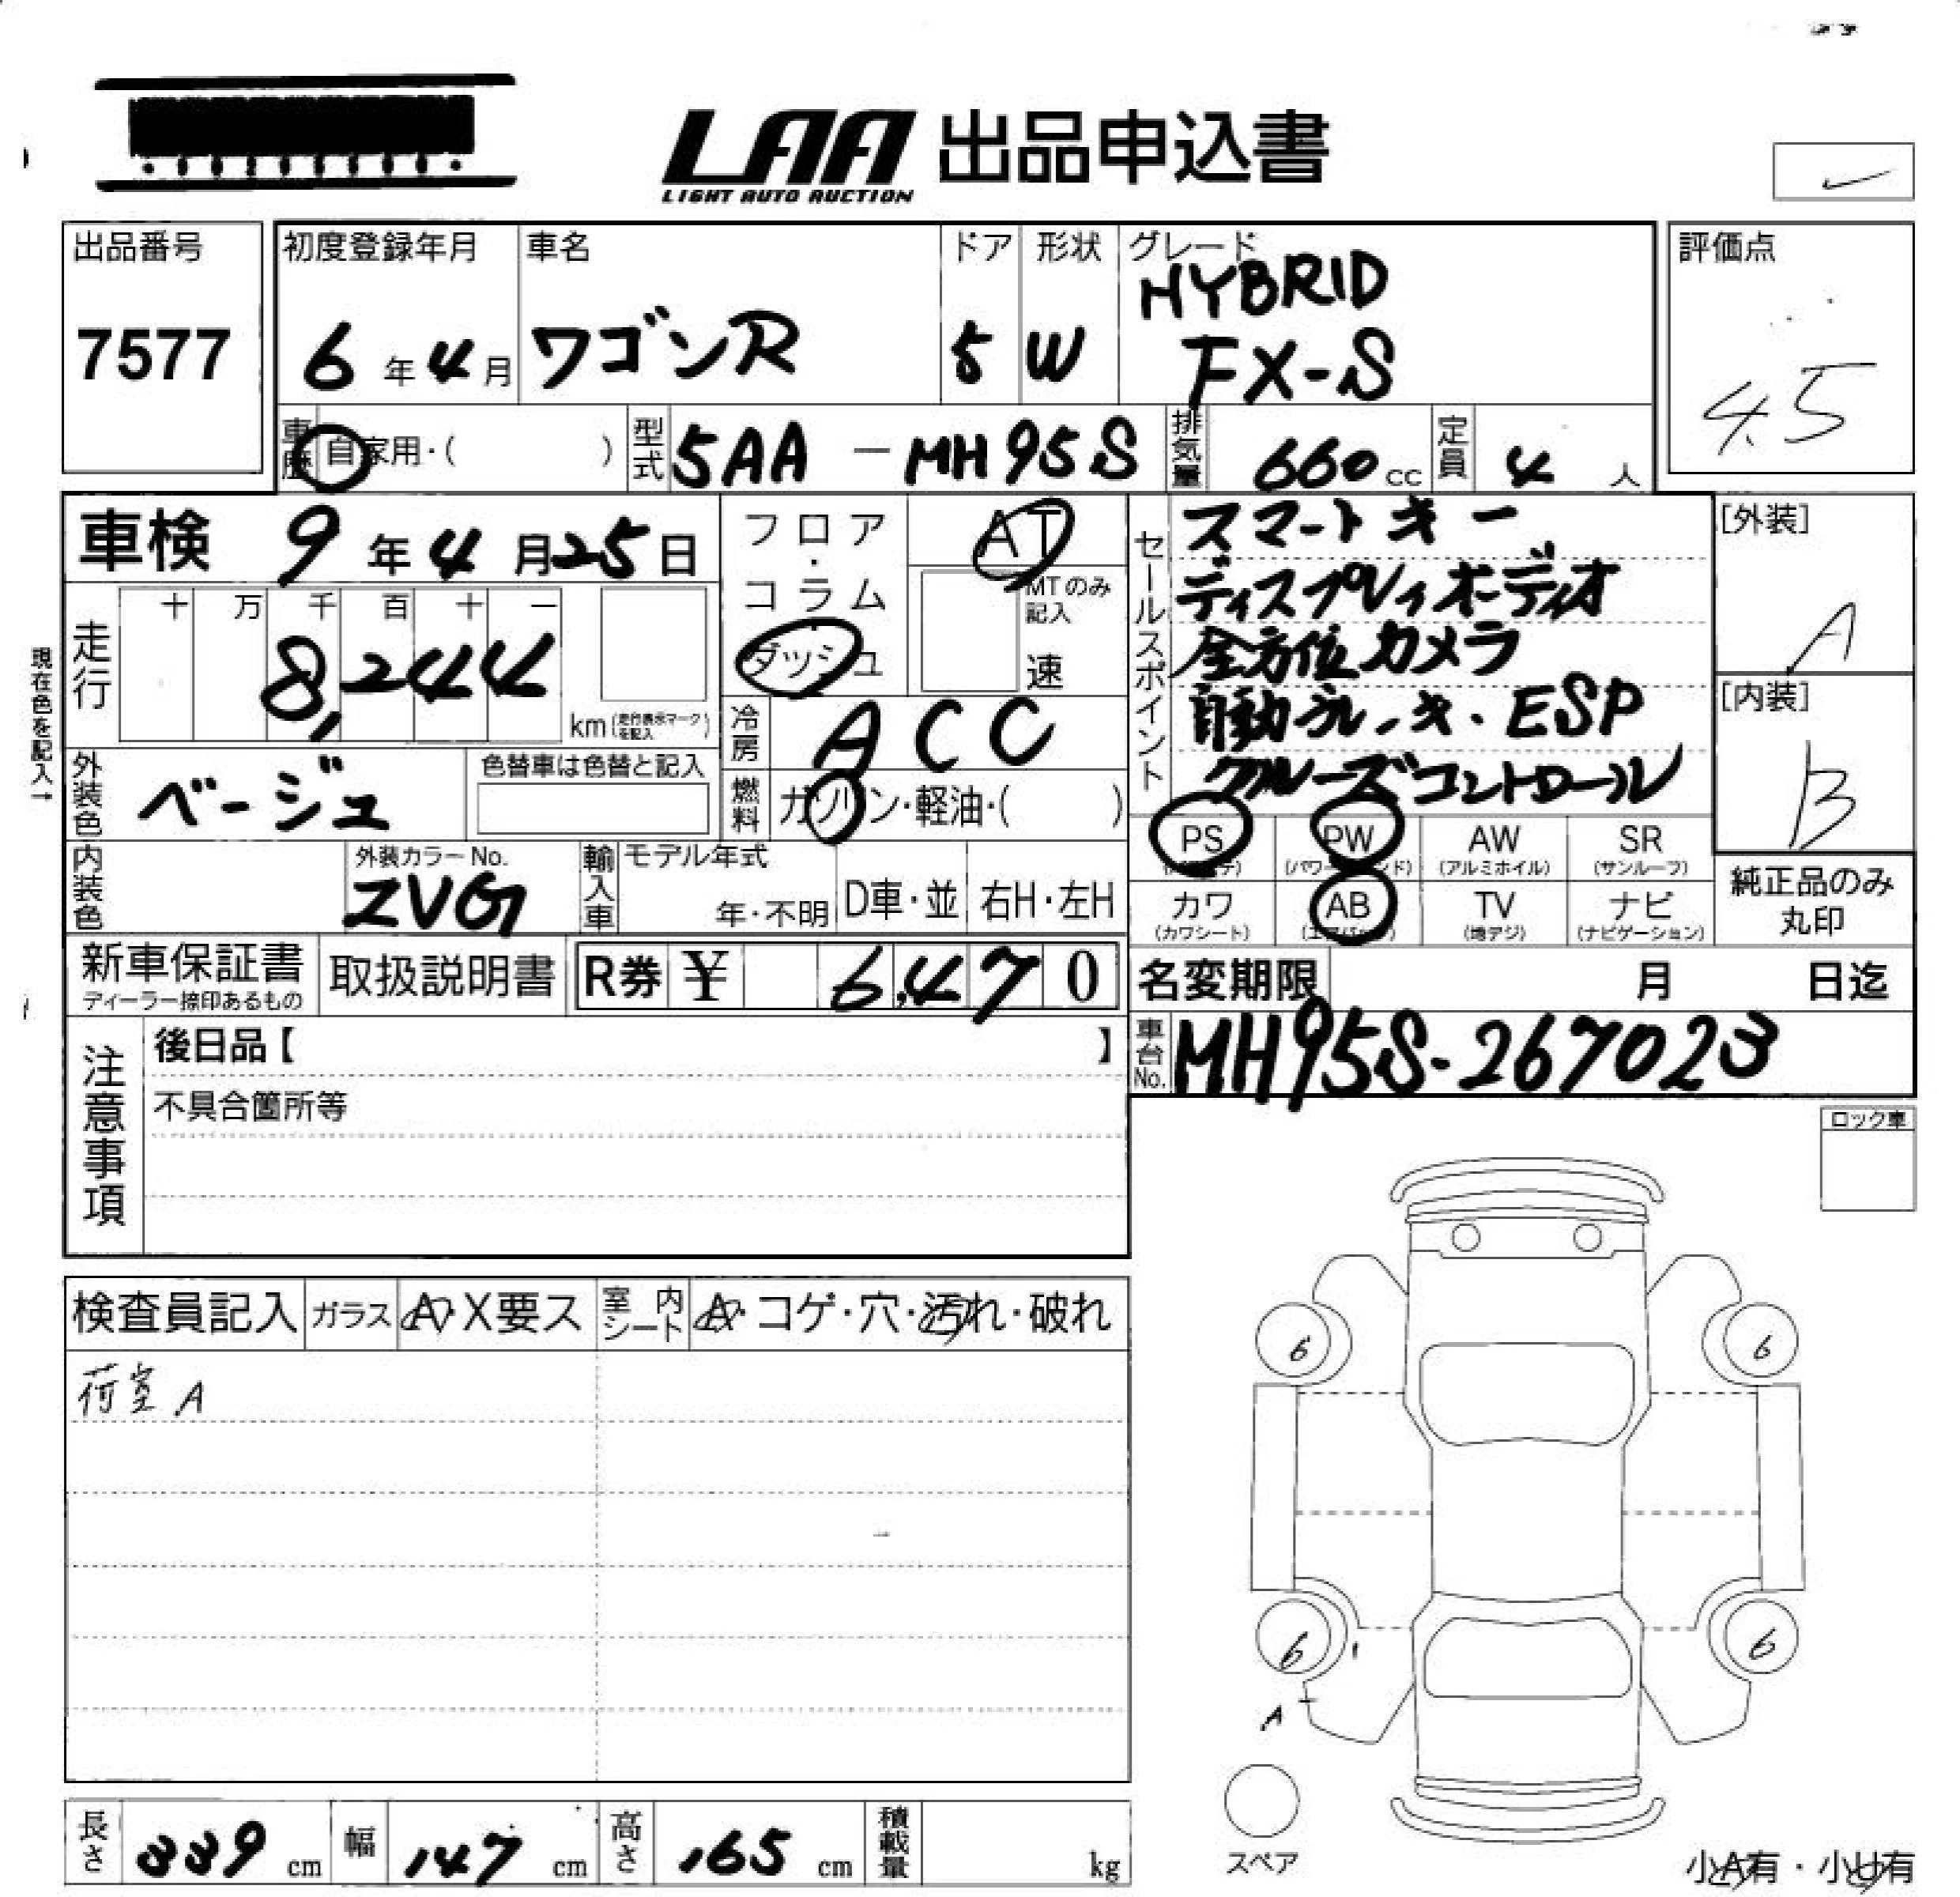 LAA 出品申込書
LIGHT AUTO AUCTION
出品番号
7577
初度登録年月
6年4月
車名
ワゴンR
ドア
5
形状
W
グレード
HYBRID
FX-S
評価点
4.5
車歴
自家用・( )
型式
5AA-MH95S
排気量
660cc
定員
4人
車検 9年4月25日
フロア
・
コラム
・
ダッシュ
AT
MTのみ
記入
速
セールスポイント
スマートキー
ディスプレイオーディオ
全方位カメラ
自動ブレーキ・ESP
クルーズコントロール
[外装]
A
[内装]
B
現在色を記入→
走行
十 万 千 百 十 一
8,244
km(走行表示マークを記入)
冷房
ACC
外装色
ベージュ
色替車は色替と記入
燃料
ガソリン・軽油・( )
PS
AW
(アルミホイル)
SR
(サンルーフ)
PW
内装色
外装カラーNo.
ZVG
輸入車
モデル年式
年・不明
D車・並
右H・左H
カワ
(カワシート)
AB
TV
(地デジ)
ナビ
(ナビゲーション)
純正品のみ
丸印
新車保証書
ディーラー捺印あるもの
取扱説明書
R券 ¥ 6,470
名変期限 月 日迄
車台No.
MH95S-267023
注意事項
後日品【 】
不具合箇所等
ロック車
検査員記入
ガラス
A・X要ス
室内シート
A・コゲ・穴・汚れ・破れ
荷室 A
6
6
6
6
A
スペア
長さ 339 cm
幅 147 cm
高さ 165 cm
積載量 kg
小A有・小U有